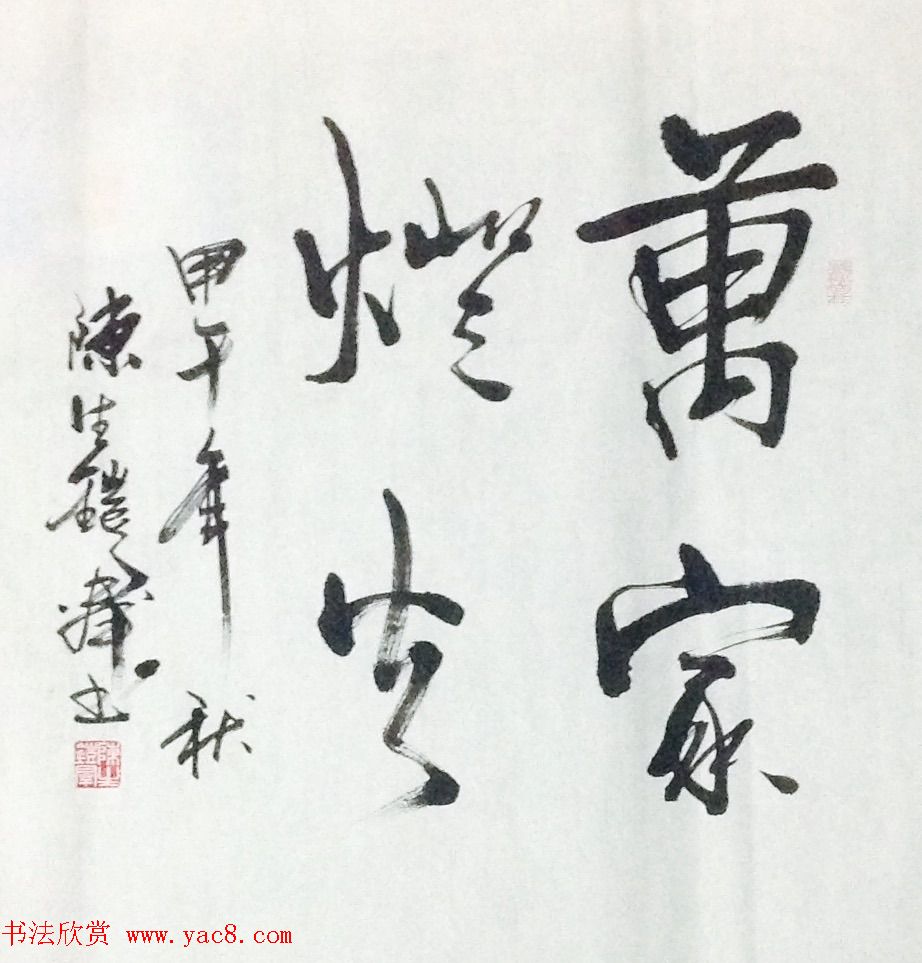 萬家
燈火
甲午年秋
陳生鎧敬书
书法欣赏 www.yac8.com